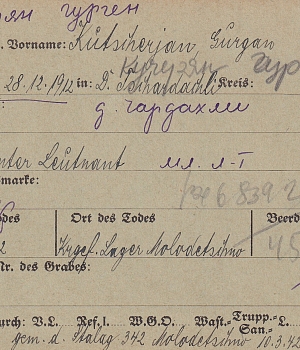 рян гурген
Vorname: Kutscherjan, Gurgan
Кучерян Гур
28.12.1912 in: D. Tschardachli Kreis:
д. Чардахли
nter Leutnant мл. л-т
marke:
odes Ort des Todes Beerd
2 Krgef. Lager Molodetschno
Nr. des Grabes:
urch: V.L. Ref.l. W.G.O. Wast.- Trupp.- San.- L.
gem. d. Stalag 342 Molodetschno 10.3.42